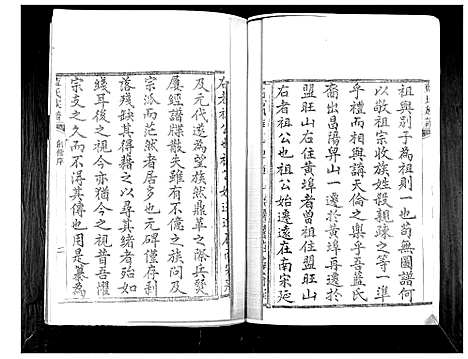 祖與別子為祖則一也茍無圖譜何
以敬祖宗收族姓殺親疎之等一準
乎禮而相與講天倫之樂乎吾藍氏
裔出昌陽昇山一遷於黃埠再遷於
盟旺山右住黃埠者曾祖住盟旺山
右者祖公也祖公始遷遠在南宋延
及元代遂為望族然鼎革之際兵燹
屢經譜牒散失雖有不億之族問及
宗派而茫然者多也元碑僅存剥
落殘缺其有得以尋其緒者殆如
綫耳後之視今亦猶今之視昔吾懼
宗支之久而不得其傳也用是纂為